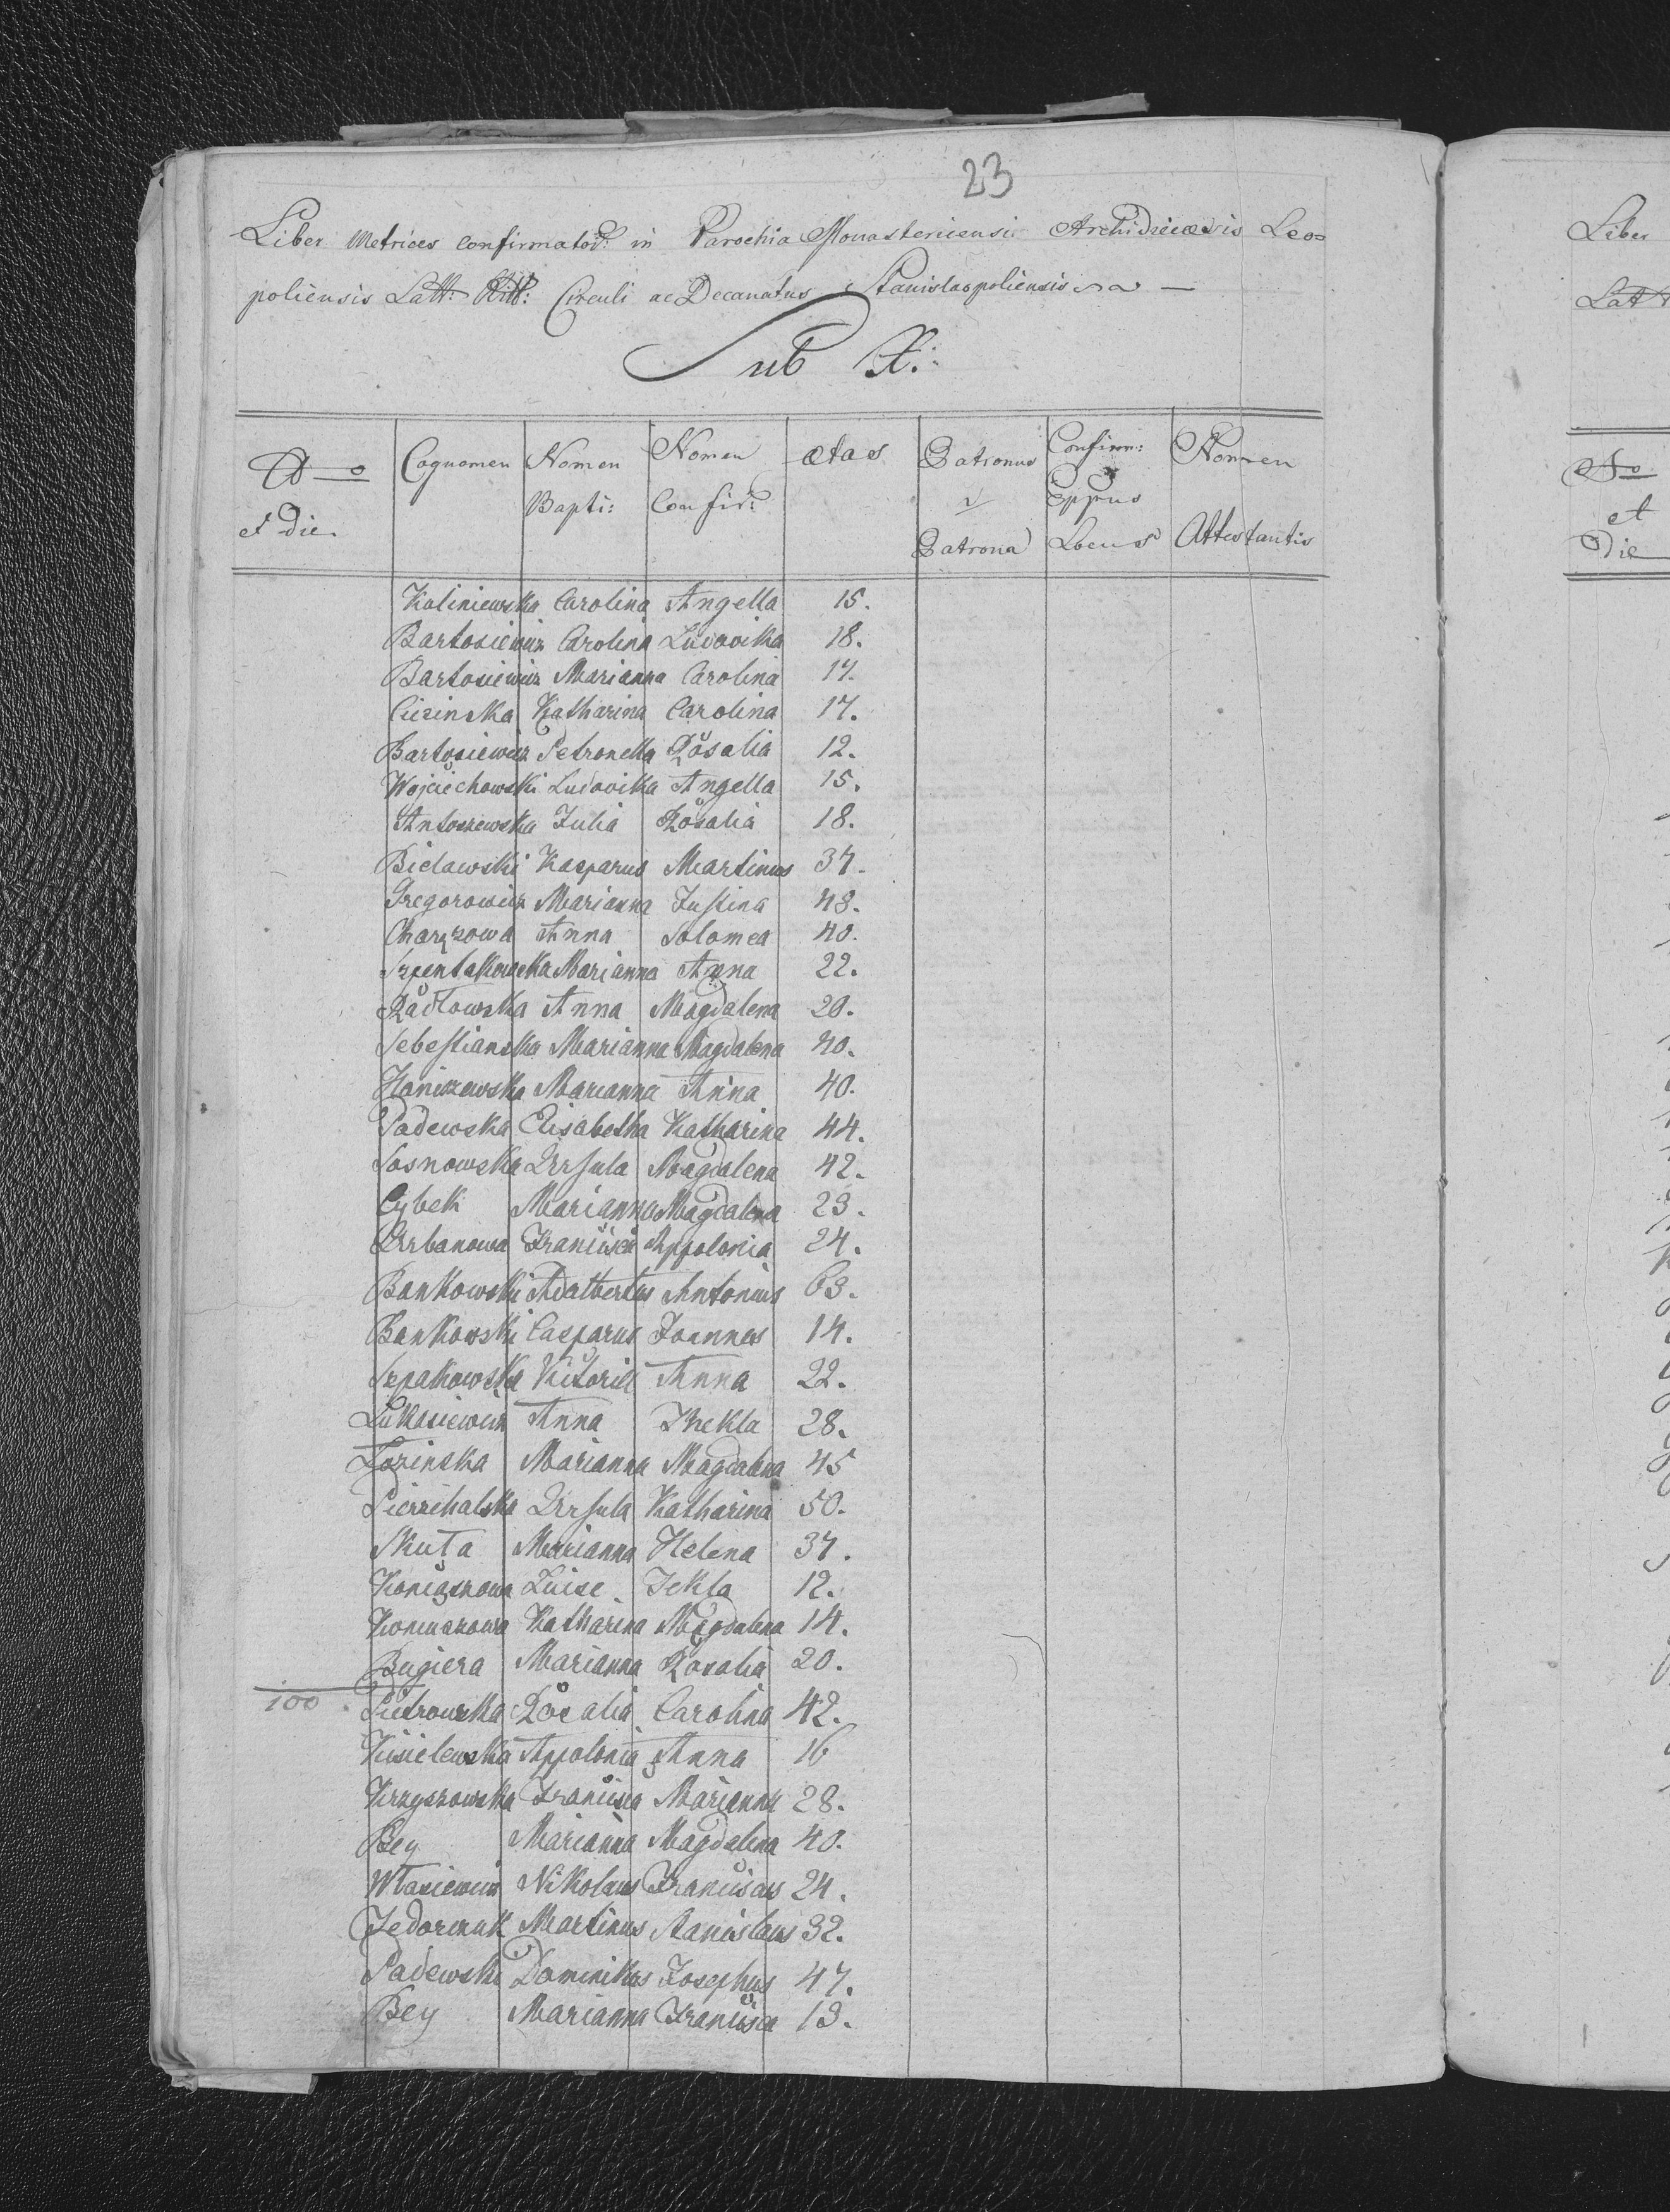 23
Liber Metrices confirmator: in Parochia Monasteriensi Archidiecesis Leo=
poliensis Latt: Ritt: Circuli ac Decanatus Stanislaopoliensis
Sub X:
Ao Cognomen Nomen Nomen ætas Patronus Confirm: Nomen
et Die. Bapti: Confir: Eppus
Patrona Locus Attestantis
Kaliniewska Carolina Angella 15.
Bartosiewicz Carolina Ludovika 18.
Bartosiewicz Marianna Carolina 17.
Ciesinska Katharina Carolina 17.
Bartosiewicz Petronella Rosalia 12.
Wojciechowski Ludovika Angella 15.
Antoszewska Julia Rosalia 18.
Bielawski Kasparus Martinus 37.
Gregorowicz Marianna Justina 48.
Anna Salomea 40.
Marianna Anna 22.
Radłowska Anna Magdalena 20.
Sebestianska Marianna Magdalena 40.
Haniszewska Marianna Anna 40.
Padewska Elisabetha Katharina 44.
Sosnowska Ursula Magdalena 42.
Cybek Marianna Magdalena 23.
Urbanowa Francisca Appolonia 24.
Bankowski Adalbertus Antonius 63.
Bankowski Casparus Joannes 14.
Szpakowska Victoria Anna 22.
Łukasiewicz Anna Thekla 28.
Łozinska Marianna Magdalena 45
Pierzchalska Ursula Katharina 50.
Skuta Marianna Helena 37.
Luise Tekla 12.
Koniuszowa Katharina Magdalena 14.
Bugiera Marianna Rosalia 20.
100 Pietrowska Rosalia Carolina 42.
Kisielewska Appolonia Anna 16
Krzyszowska Francisca Marianna 28.
Bey Marianna Magdalena 40.
Własiewicz Nikolaus Franciscus 24.
Fedorczuk Martinus Stanislaus 32.
Padewski Dominikus Josephus 47.
Bey Marianna Francisca 13.
Liber
Latt
Ao
et
Die